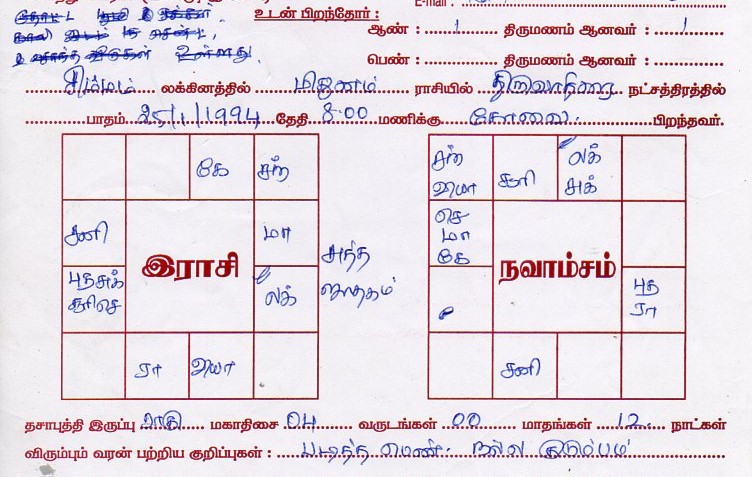 உடன் பிறந்தோர் :
உள்ளது.
ஆண் : 1 திருமணம் ஆனவர் : 1
பெண் : திருமணம் ஆனவர் :
சிம்மம் லக்கினத்தில் மிதுனம் ராசியில் திருவாதிரை நட்சத்திரத்தில்
பாதம் 25/1/1994 தேதி 8.00 மணிக்கு கோவை. பிறந்தவர்.
கே சந்
சனி மா
இராசி
புத சுக்
சூரி செ
லக்
ரா
சுத்த
ஜாதகம்
சந் சூரி லக்
சுக்
செ
மா
கே
நவாம்சம்
புத
ரா
சனி
தசாபுத்தி இருப்பு ராகு மகாதிசை 04 வருடங்கள் 00 மாதங்கள் 12 நாட்கள்
விரும்பும் வரன் பற்றிய குறிப்புகள் : படித்த பெண். நல்ல குடும்பம்